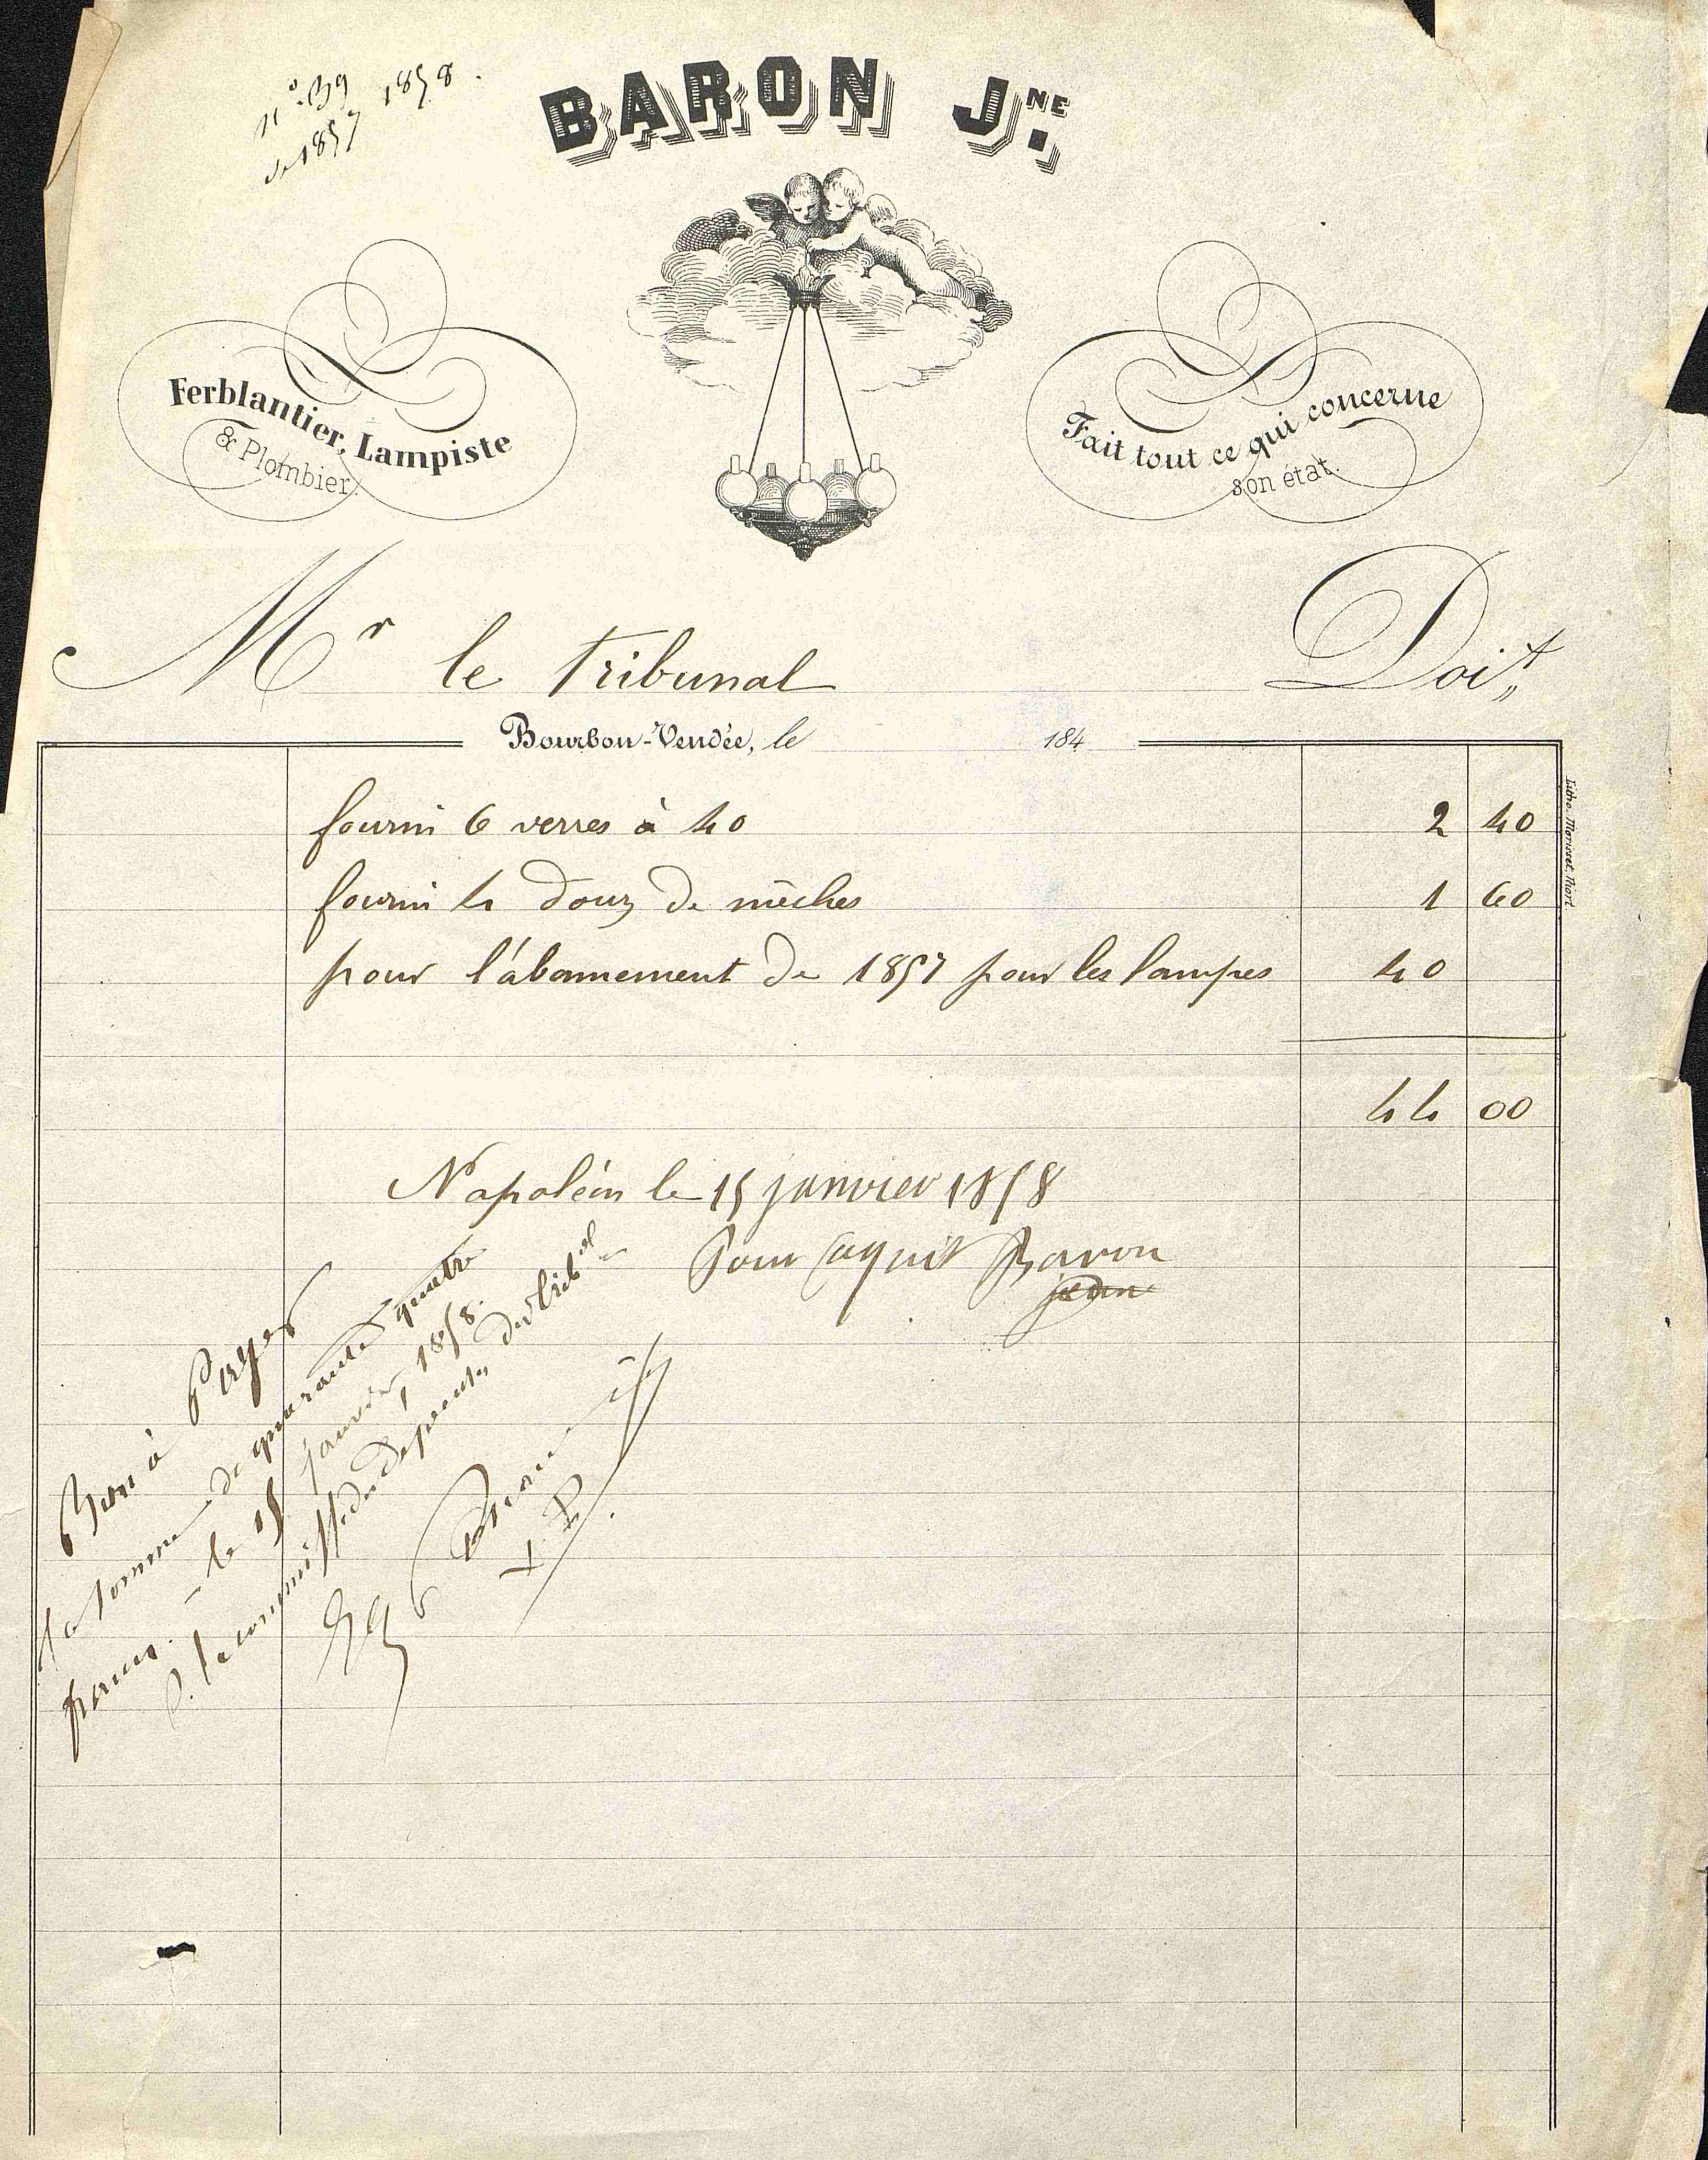 n° 39 1858.
de 1857
BARON JNE.
Ferblantier, Lampiste
& Plombier.
Fait tout ce qui concerne
son état.
Mr le tribunal Doit,,
Bourbon-Vendée, le 184
fourni 6 verres à 40 2 40
fourni 4 douz de mêches 1 60
pour l'abonnement de 1857 pour les lampes 40
44 00
Napoléon le 15 janvier 1858
Pour aquit Baron
jeune
Bon à Payer
la somme de quarante quatre
francs. - le 15 janvier 1858.
P. la commiss. des dépenses du tribal
Litho. Morisset, Niort.